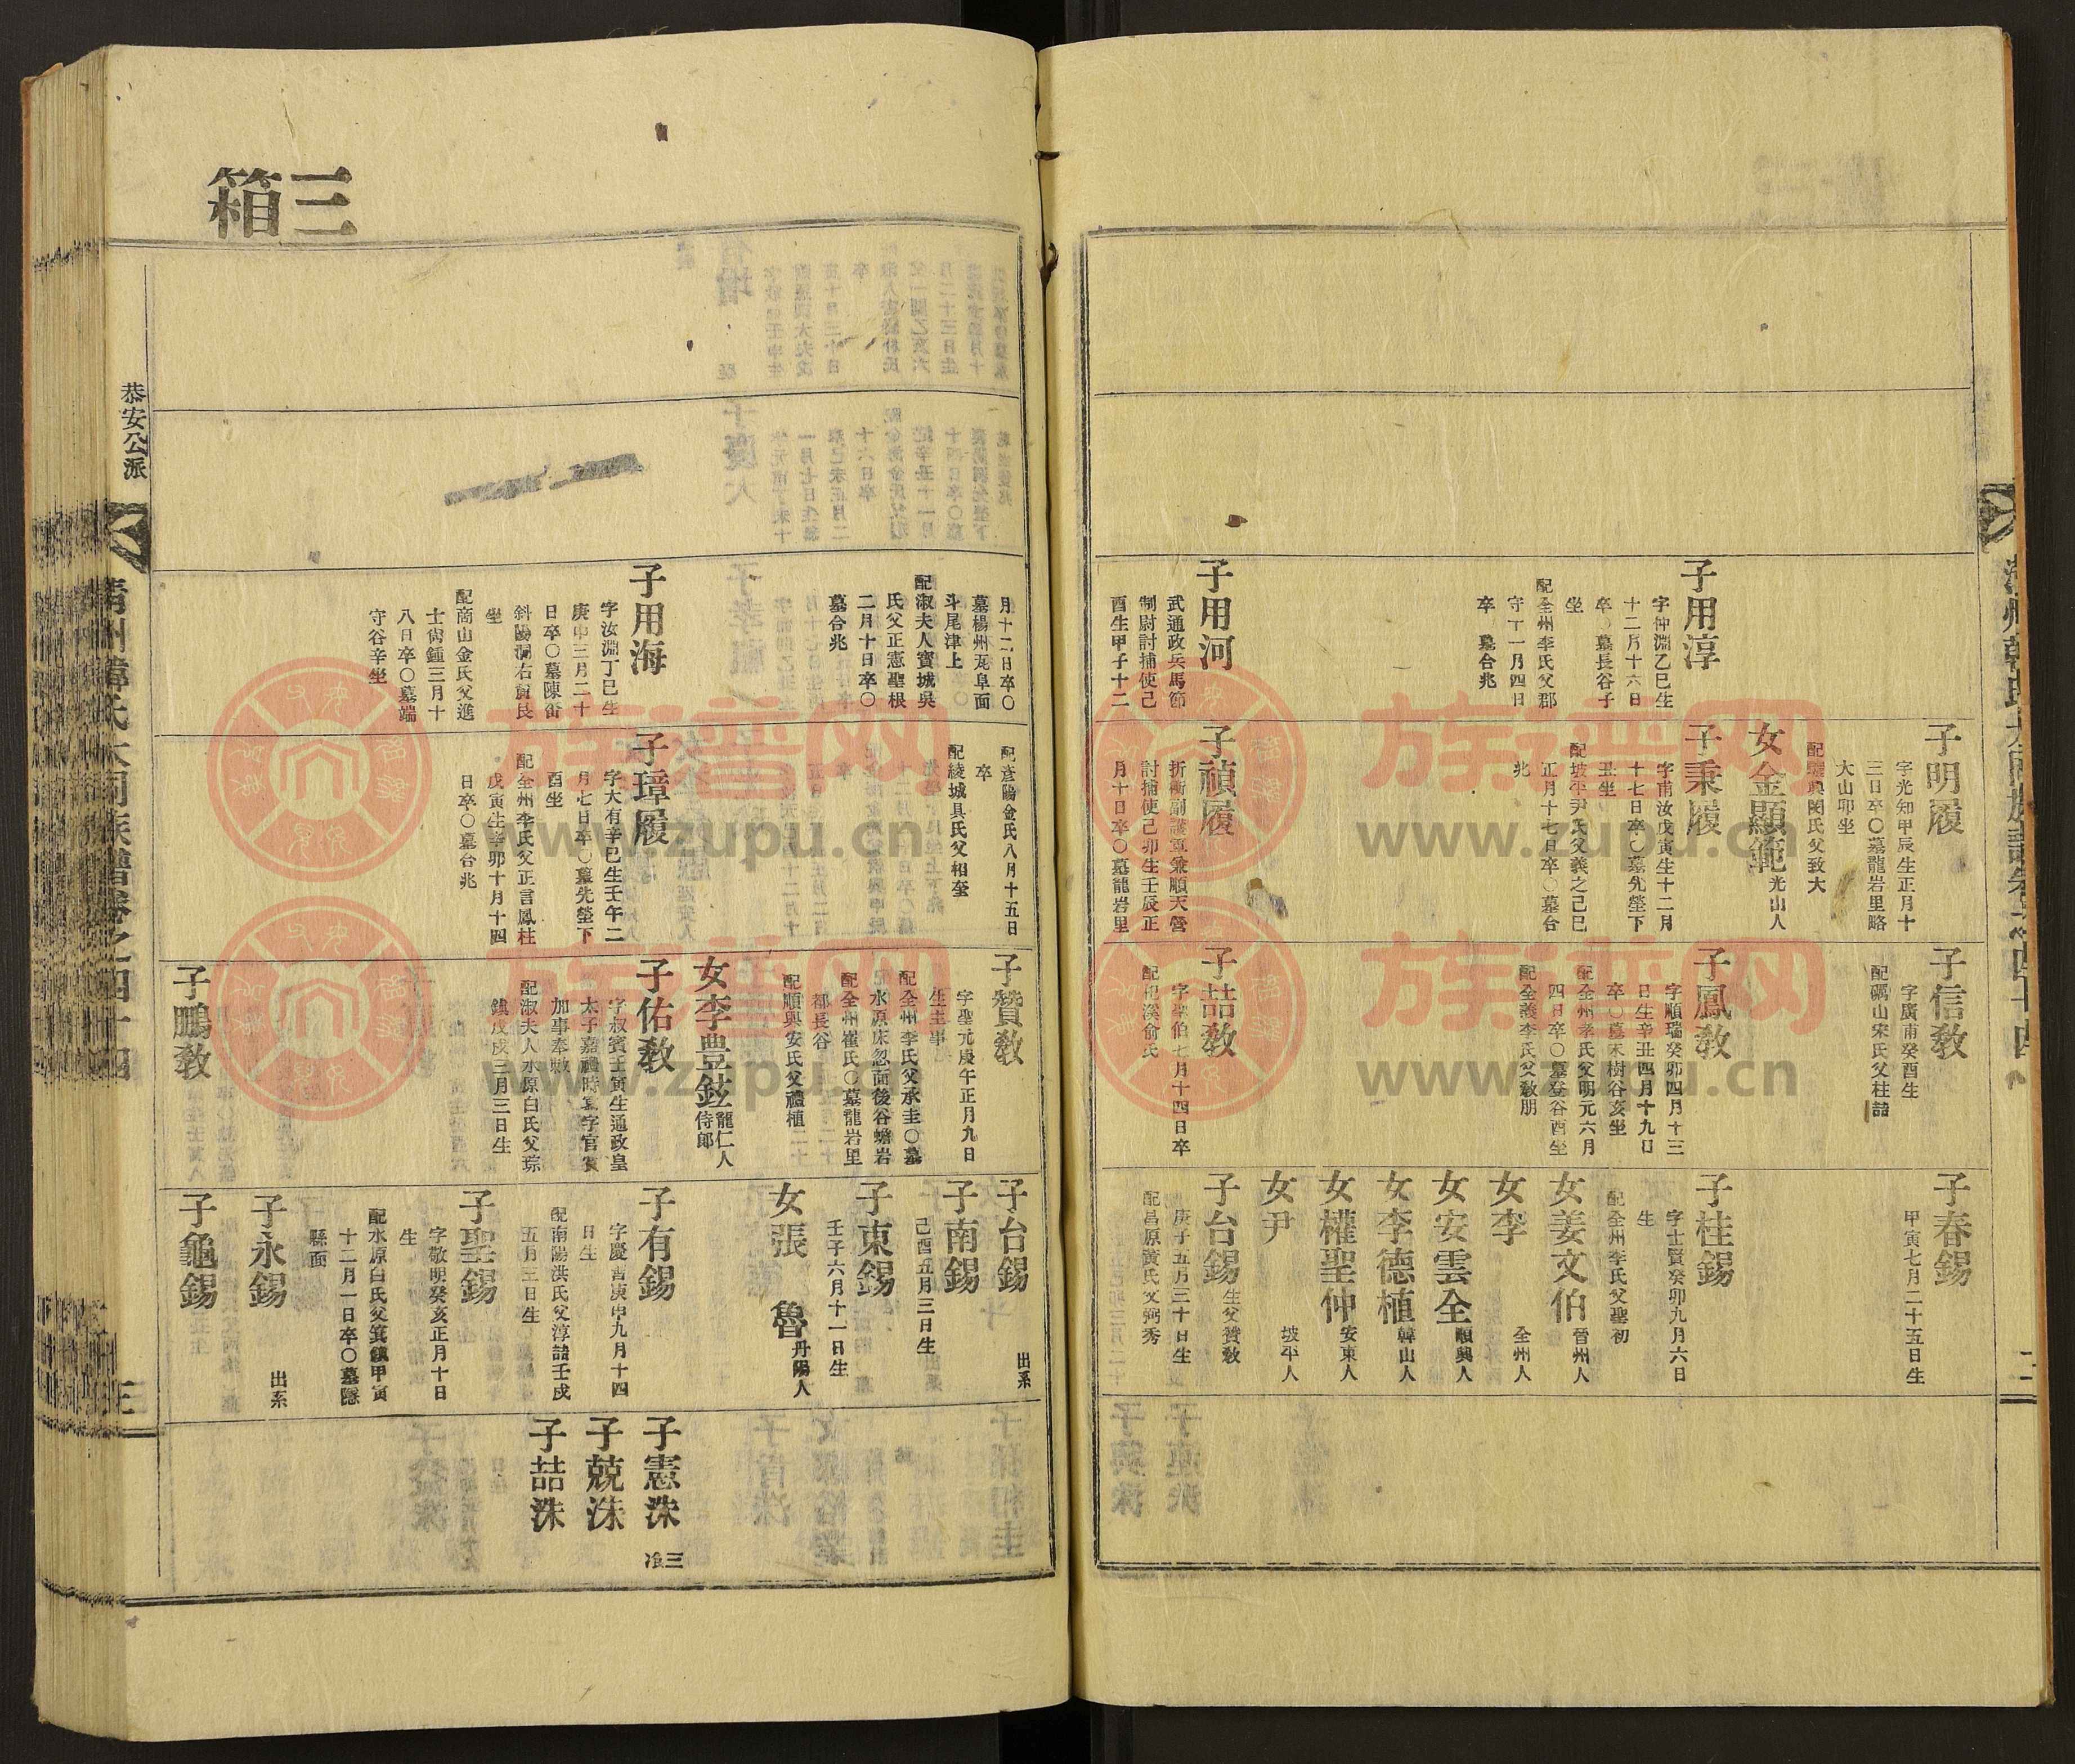 子用淳
字仲淵乙巳生
十二月十六日
卒〇墓長谷子
坐
配全州李氏父郡
守丁一月四日
卒〇墓合兆
子用河
武通政兵馬節
制尉討捕使己
酉生甲子十二
子明履
字光知甲辰生正月十
三日卒〇墓龍岩里略
大山卯坐
配驪興閔氏父致大
女金顯範
光山人
子秉履
字甫汝戊寅生十二月
十七日卒〇墓先塋下
丑坐
配坡平尹氏父義之己巳
正月十七日卒〇墓合
兆
子禎履
折衝副護軍兼順天營
討捕使己卯生壬辰正
月十日卒〇墓龍岩里
子信敎
字廣甫癸酉生
配礪山宋氏父柱喆
子鳳敎
字順瑞癸卯四月十三
日生辛丑四月十九日
卒〇墓末樹谷亥坐
配全州李氏父明元六月
四日卒〇墓登谷酉坐
配全義李氏父敎朋
子喆敎
字聖伯七月十四日卒
配杞溪俞氏
子春錫
甲寅七月二十五日生
子桂錫
字士賢癸卯九月六日
生
配全州李氏父聖初
女姜文伯
晉州人
女李
全州人
女安雲全
順興人
女李德植
韓山人
女權聖仲
安東人
女尹
坡平人
子台錫
生父贊敎
庚子五月三十日生
配昌原黃氏父弼秀
三箱
月十二日卒〇
墓楊州尨阜面
斗尾津上
配淑夫人寶城吳
氏父正憲聖根
二月十日卒〇
墓合兆
子用海
字汝淵丁巳生
庚申三月二十
日卒〇墓陳畓
斜陽澗右㒷艮
坐
配商山金氏父進
士儁鍾三月十
八日卒〇墓端
守谷辛坐
配彥陽金氏八月十五日
卒
配綾城具氏父相奎
子璋履
字大有辛巳生壬午二
月七日卒〇墓先塋下
酉坐
配全州李氏父正言鳳柱
戊寅生辛卯十月十四
日卒〇墓合兆
子贊敎
字聖元庚午正月九日
生主事
配全州李氏父承圭〇墓
水原床忽面後谷蟾岩
配全州崔氏〇墓龍岩里
都長谷
配順興安氏父禮植
女李豊鉉
龍仁人
侍郞
子佑敎
字叔賓壬寅生通政皇
太子嘉禮時冩字官賓
加事奉敕
配淑夫人水原白氏父琮
鎮戊戌三月三日生
子鵬敎
子台錫
出系
子南錫
己酉五月三日生
子東錫
壬子六月十一日生
女張 魯
丹陽人
子有錫
字慶晳庚申九月十四
日生
配南陽洪氏父淳喆壬戌
五月三日生
子聖錫
字敬明癸亥正月十日
生
配水原白氏父箕鎮甲寅
十二月一日卒〇墓隱
縣面
子永錫
出系
子龜錫
子憲洙
三冷
子兢洙
子喆洙
恭安公派
淸州韓氏大同族譜卷之四十四
三
族谱网
www.zupu.cn
族谱网
www.zupu.cn
族谱网
www.zupu.cn
族谱网
www.zupu.cn